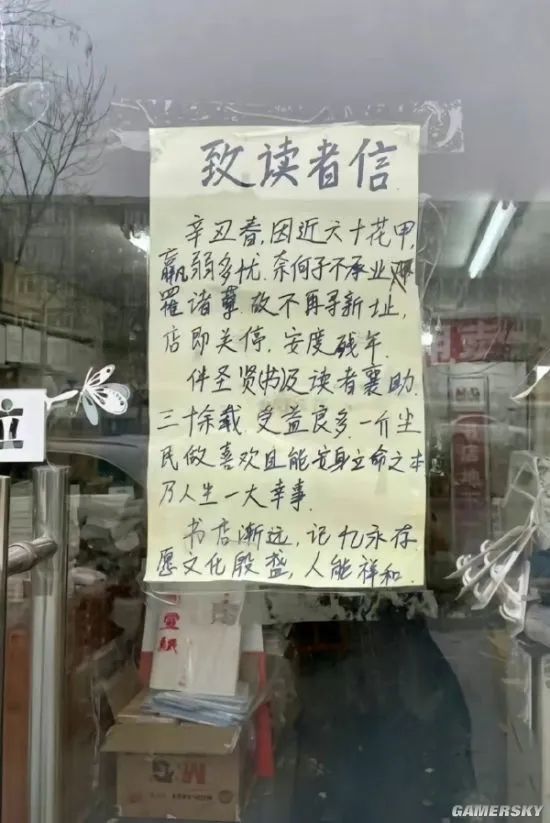 致读者信
辛丑春,因近六十花甲,
羸弱多忧.奈何子不承业
罹诸孽.故不再寻新址,
店即关停,安度残年.
伴圣贤(书)及读者襄助.
三十余载,受益良多.一介尘
民做喜欢且能安身立命之本
乃人生一大幸事.
书店渐远,记忆永存
愿文化殷盛,人能祥和
M&G
GAMERSKY